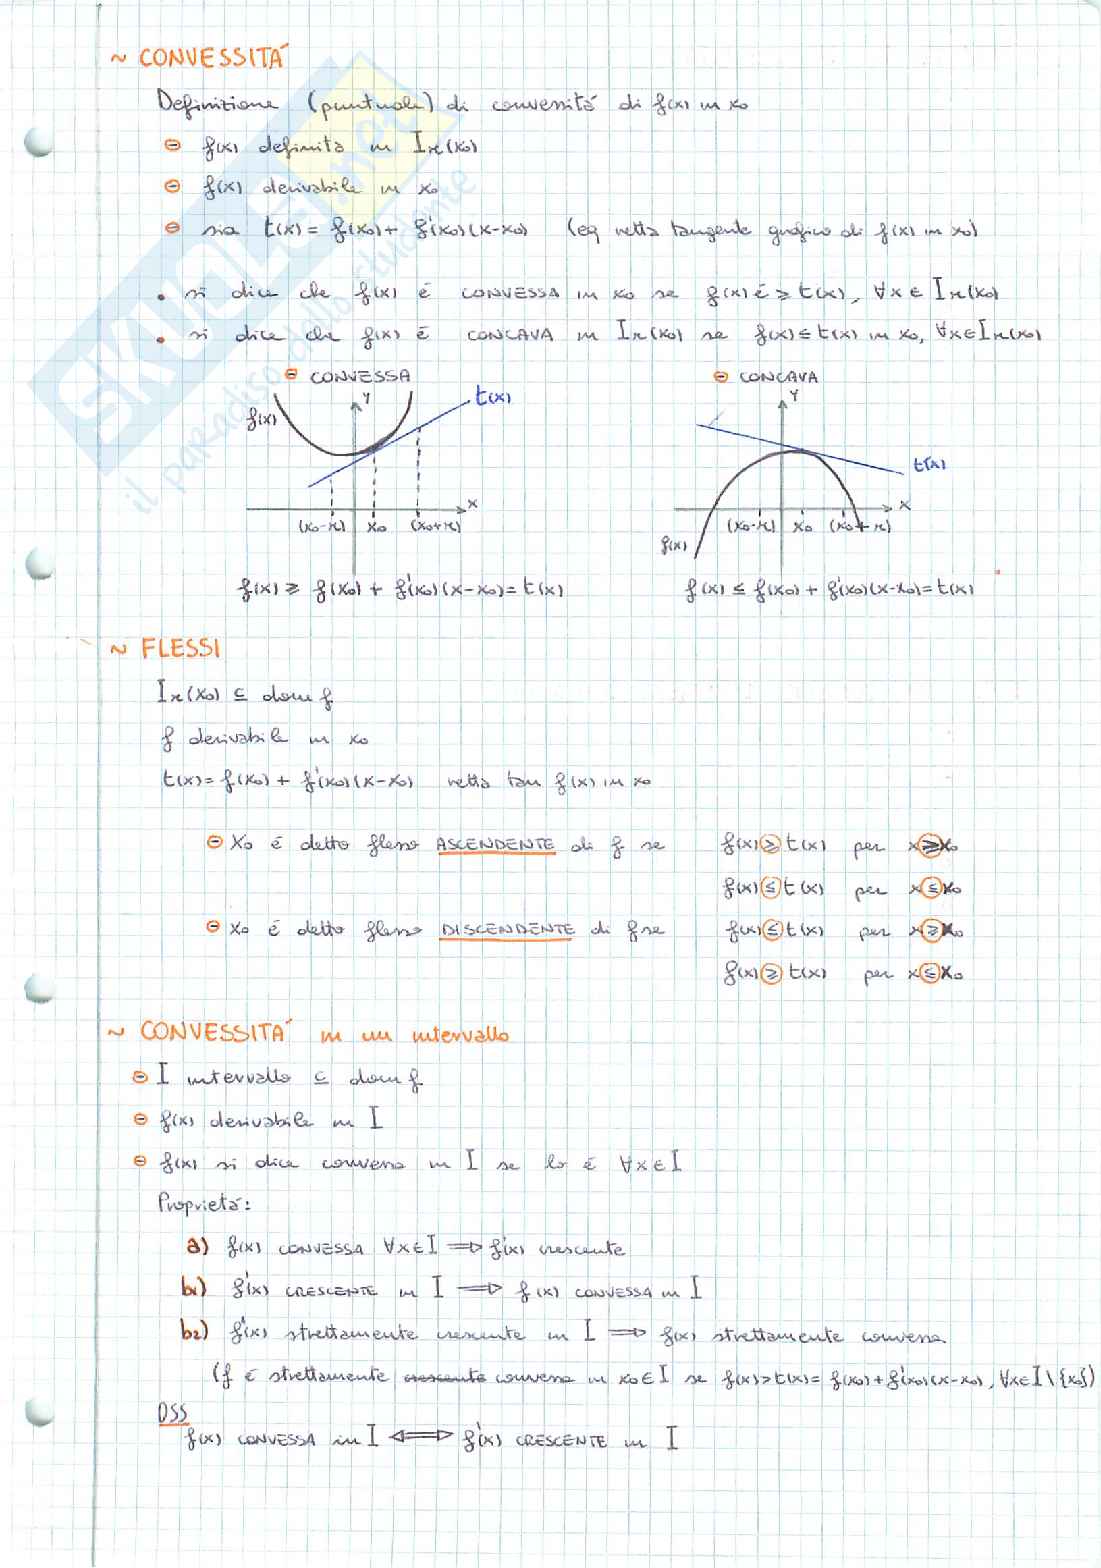 ~ CONVESSITÁ
Definizione (puntuale) di convessitá di f(x) in x₀
⊖ f(x) definita in Iᵣ(x₀)
⊖ f(x) derivabile in x₀
⊖ sia t(x) = f(x₀) + f'(x₀)(x-x₀) (eq retta tangente grafico di f(x) in x₀)
• si dice che f(x) é CONVESSA in x₀ se f(x) é ≥ t(x), ∀x ∈ Iᵣ(x₀)
• si dice che f(x) é CONCAVA in Iᵣ(x₀) se f(x) ≤ t(x) in x₀, ∀x ∈ Iᵣ(x₀)
⊖ CONVESSA ⊖ CONCAVA
f(x) Y t(x) Y t(x)
(x₀-r) x₀ (x₀+r) X (x₀-r) x₀ (x₀+r) X
f(x)
f(x) ≥ f(x₀) + f'(x₀)(x-x₀) = t(x) f(x) ≤ f(x₀) + f'(x₀)(x-x₀) = t(x)
~ FLESSI
Iᵣ(x₀) ⊆ dom f
f derivabile in x₀
t(x) = f(x₀) + f'(x₀)(x-x₀) retta tan f(x) in x₀
⊖ X₀ é detto flesso ASCENDENTE di f se f(x) ≥ t(x) per x ≥ x₀
f(x) ≤ t(x) per x ≤ x₀
⊖ X₀ é detto flesso DISCENDENTE di f se f(x) ≤ t(x) per x ≥ x₀
f(x) ≥ t(x) per x ≤ x₀
~ CONVESSITÁ in un intervallo
⊖ I intervallo ⊆ dom f
⊖ f(x) derivabile in I
⊖ f(x) si dice convessa in I se lo é ∀x ∈ I
Proprietá:
a) f(x) CONVESSA ∀x ∈ I ⟹ f'(x) crescente
b₁) f'(x) CRESCENTE in I ⟹ f(x) CONVESSA in I
b₂) f'(x) strettamente crescente in I ⟹ f(x) strettamente convessa
(f é strettamente crescente convessa in x₀ ∈ I se f(x) > t(x) = f(x₀) + f'(x₀)(x-x₀), ∀x ∈ I \ {x₀})
OSS
f(x) CONVESSA in I ⟺ f'(x) CRESCENTE in I
SKUOLA.net
il paradiso dello studente